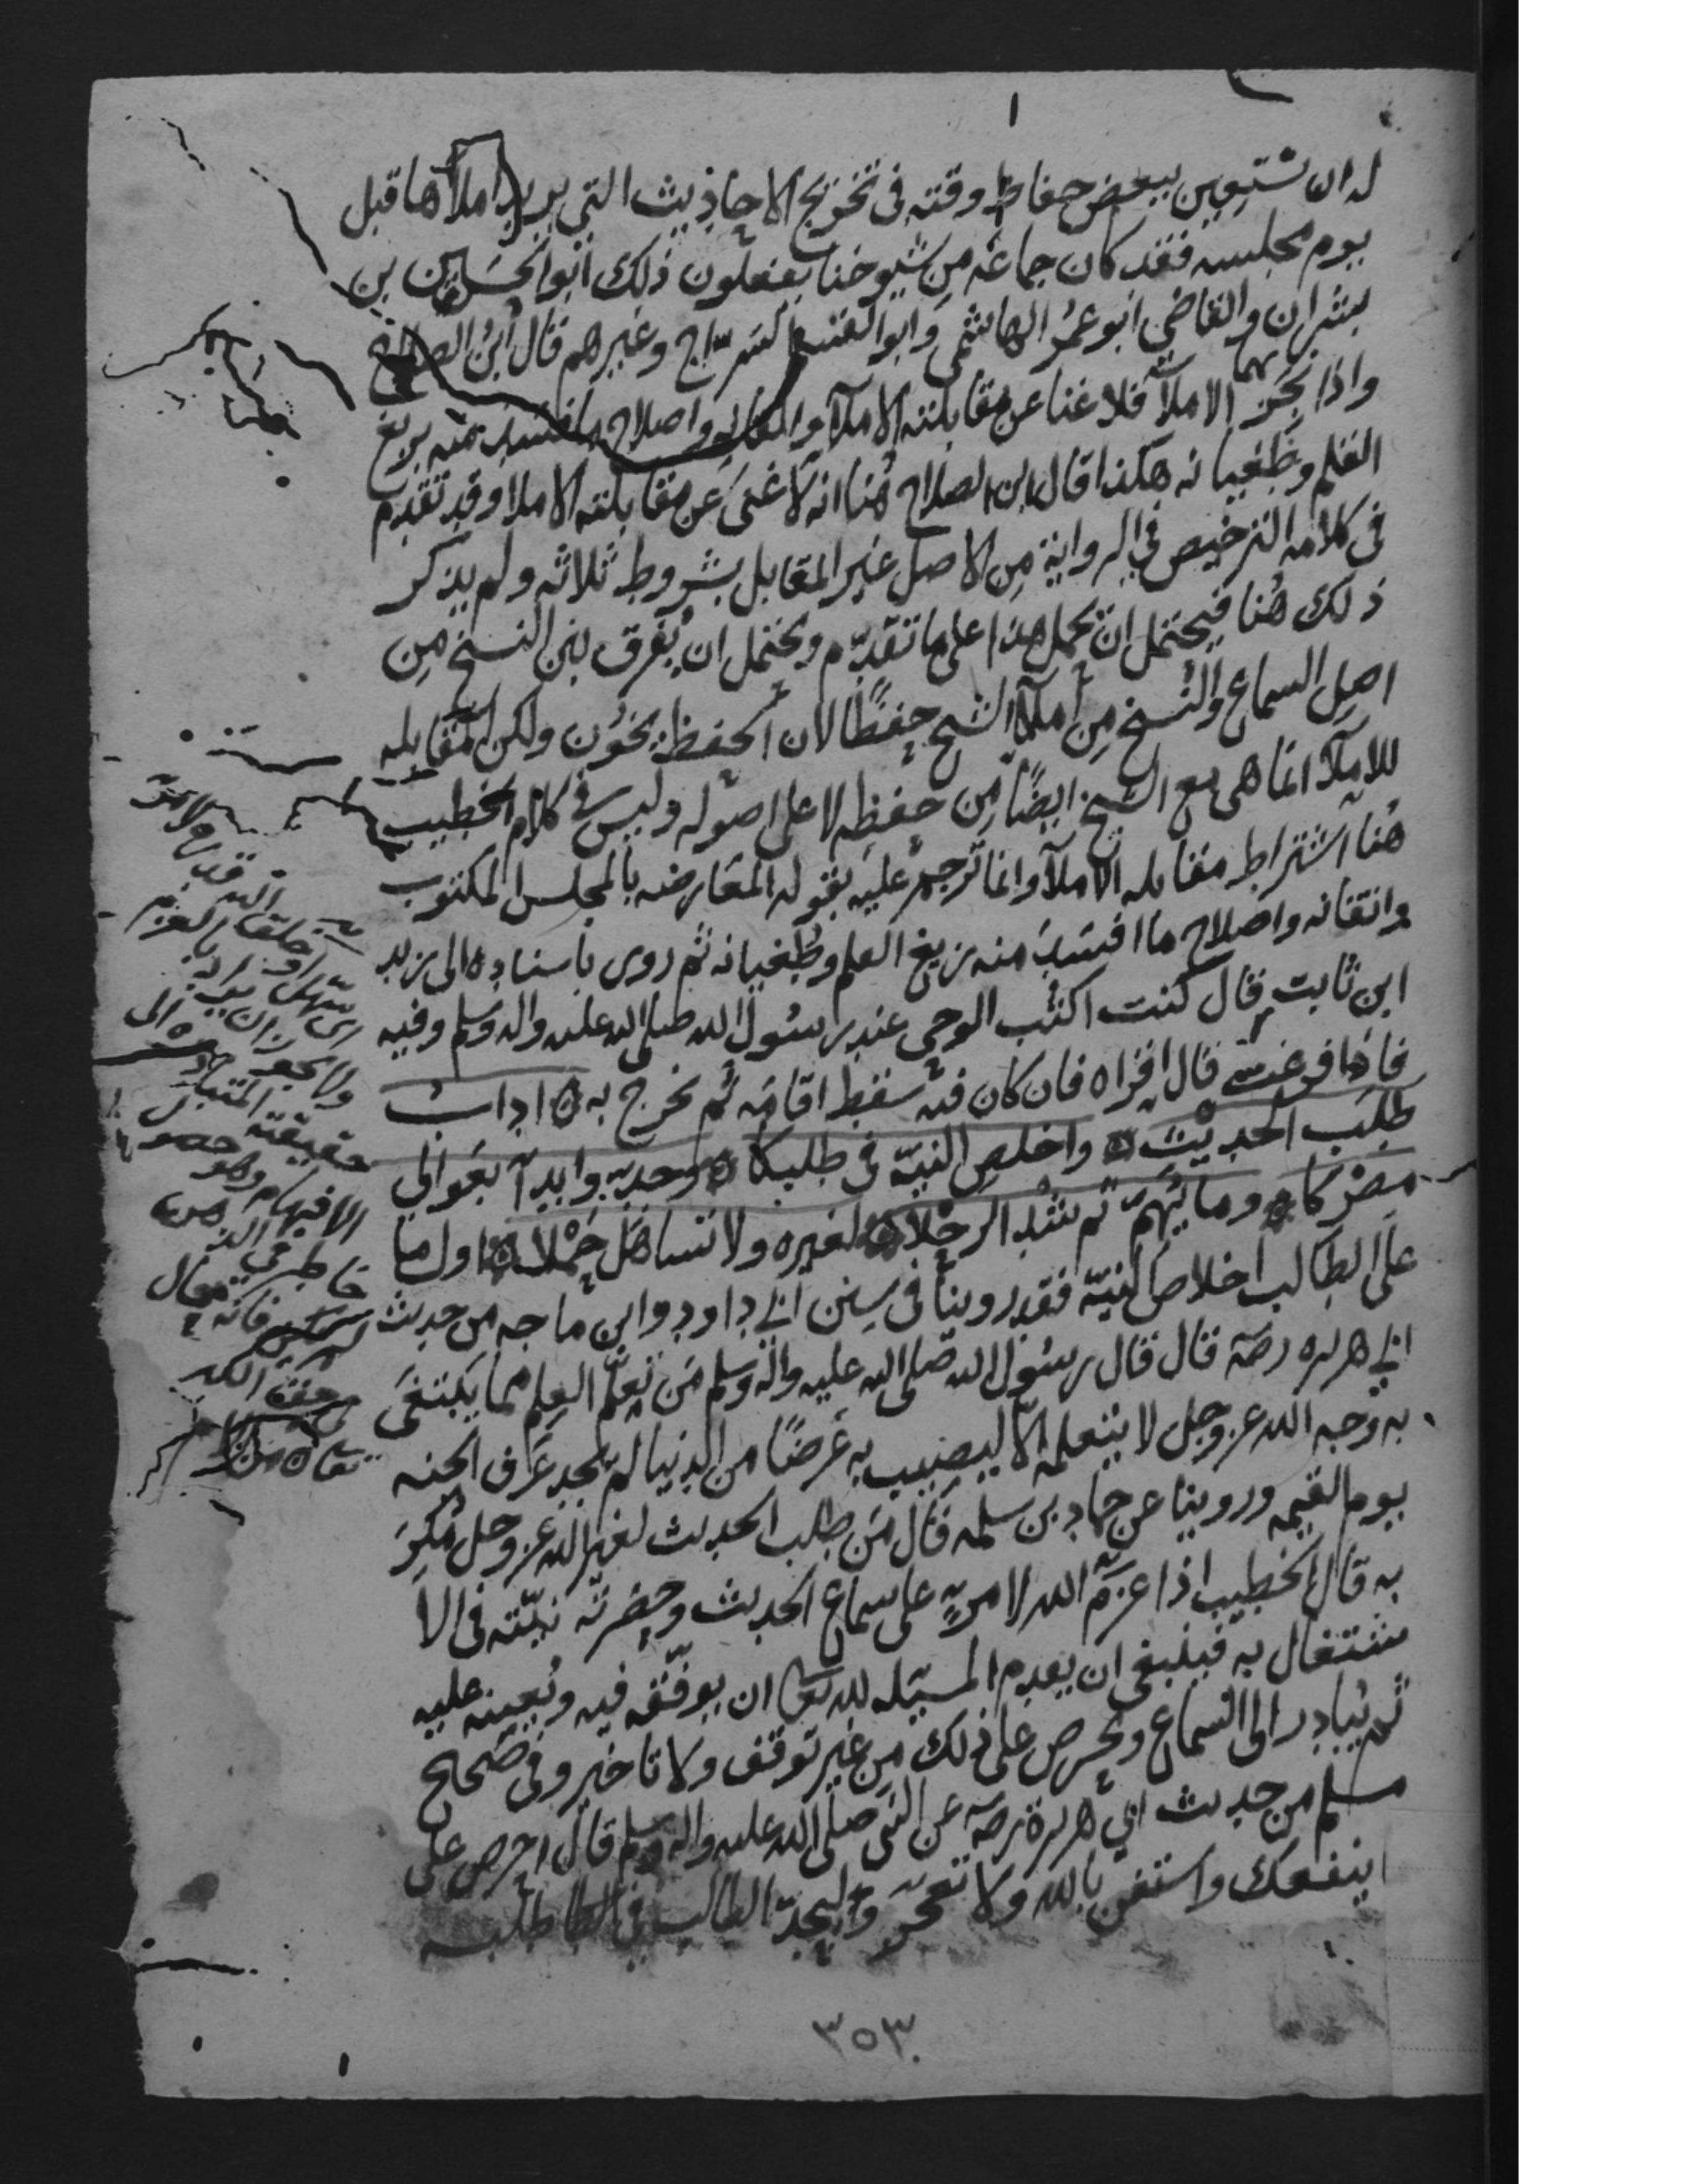 له ان يستعين ببعض حفاظ وقته في تخريج الاحاديث التي يريد املأها قبل
يوم مجلسه فقد كان جماعة من شيوخنا يفعلون ذلك ابوالحسين بن
بشران والقاضي ابوعمر الهاشمي وابوالفتح السراج وغيرهم قال ابن الصلاح
واذا نجز الاملآ فلا غنا عن مقابلته واصلاح ما فسد منه بزيغ
القلم وطغيانه هكذا قال ابن الصلاح هنا انه لا غنى عن مقابلته الاملا وقد تقدم
في كلامه الترخيص في الرواية من الاصل غير المقابل بشروط ثلاثه ولم يذكر
ذلك هنا فيحتمل ان يحمل هذا على ما تقدم ويحتمل ان يفرق بين النسخ من
اصل السماع والنسخ من املآ الشيخ حفظًا لان الحفظ يخون ولكن المقابله
للاملآ انما هي مع الشيخ ايضًا من حفظه لا على اصوله وليس في كلام الخطيب
هنا اشتراط مقابله الاملآ وانما ترجم عليه بقوله المعارضه بالمجلس المكتوب
واتقانه واصلاح ما افسد منه زيغ القلم وطغيانه ثم روى باسناده الى زيد
ابن ثابت قال كنت اكتب الوحي عند رسول الله صلى الله عليه واله وسلم وفيه
فاذا فرغت قال اقرأه فان كان فيه سقط اقامه ثم نخرج به اداب
طلب الحديث واخلص النية في طلبكا وجد وابدأ بعوالي
مصركا وما يهم ثم شد الرحلا لغيره ولا تساهل حملا اول ما
على الطالب اخلاص النية فقد روينا في سنن ابي داود وابن ماجه من حديث
ابي هريره رضه قال قال رسول الله صلى الله عليه واله وسلم من تعلم العلم مما يبتغى
به وجه الله عز وجل لا يتعلمه الا ليصيب به عرضًا من الدنيا لم يجد عرف الجنه
يوم القيمه وروينا عن حماد بن سلمه قال من طلب الحديث لغير الله عز وجل مكر
به قال الخطيب اذا عزم الله لامرئ على سماع الحديث وحضرته نيته في الا
شتغال به فينبغي ان يقدم المسئله لله تعا ان يوفقه فيه ويعينه عليه
ثم يبادر الى السماع ويحرص على ذلك من غير توقف ولا تاخير وفي صحيح
مسلم من حديث ابي هريرة رضه عن النبي صلى الله عليه واله وسلم قال احرص على
ينفعك واستعن بالله ولا تعجز وليجد الطالب في طلبه
ولا يجوز ان يراد بالعزم
حقيقته المتبادره الى
الافهام وهو حصول
خاطر في الذهن
فانه محال
٣٥٣